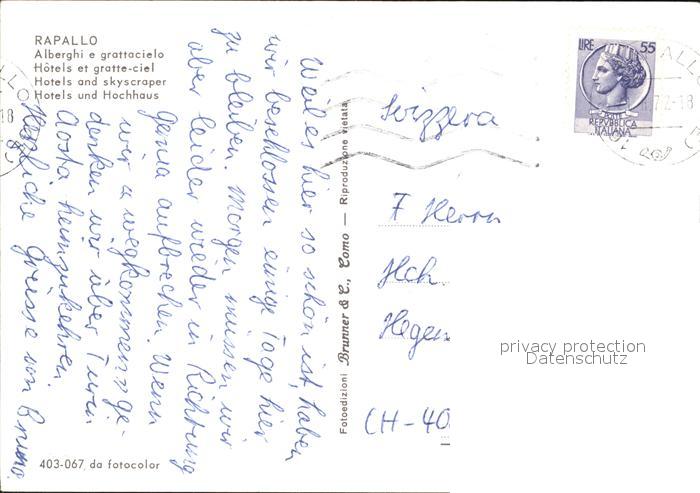 RAPALLO
Alberghi e grattacielo
Hôtels et gratte-ciel
Hotels and skyscraper
Hotels und Hochhaus
Weil es hier so schön ist, haben
wir beschlossen einige Tage hier
zu bleiben. Morgen müssen wir
aber leider wieder in Richtung
Genua aufbrechen. Wenn
wir a wegkommen ge-
denken wir über Turin
Aosta heimzukehren
Herzliche Grüsse von Bruno
403-067, da fotocolor
Fotoedizioni Brunner & C., Como — Riproduzione vietata
LIRE 55
POSTE
REPUBBLICA
ITALIANA
Svizzera
F Herrn
Hch
Hegen
CH-40
privacy protection
Datenschutz